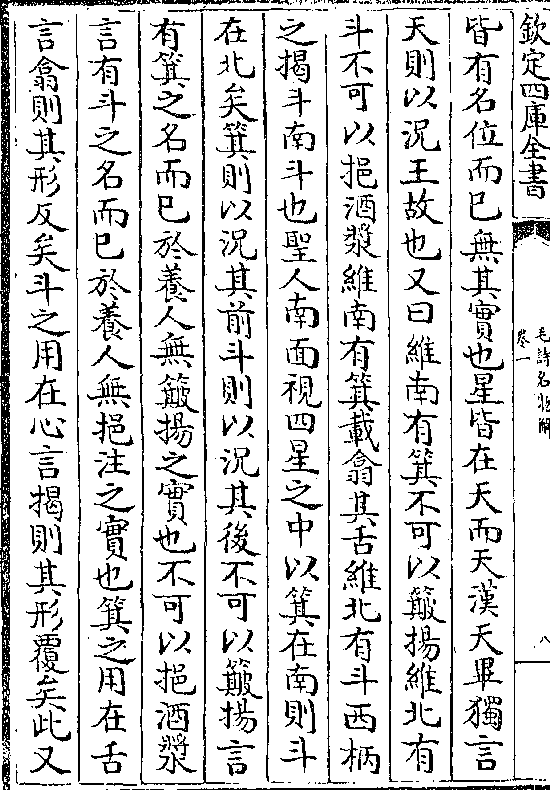 欽定四庫全書
毛詩名物解
卷一
八
皆有名位而已無其實也星皆在天而天漢天畢獨言
天則以況王故也又曰維南有箕不可以簸揚維北有
斗不可以挹酒漿維南有箕載翕其舌維北有斗西柄
之揭斗南斗也聖人南面視四星之中以箕在南則斗
在北矣箕則以況其前斗則以況其後不可以簸揚言
有箕之名而已於養人無簸揚之實也不可以挹酒漿
言有斗之名而已於養人無挹注之實也箕之用在舌
言翕則其形反矣斗之用在心言揭則其形覆矣此又